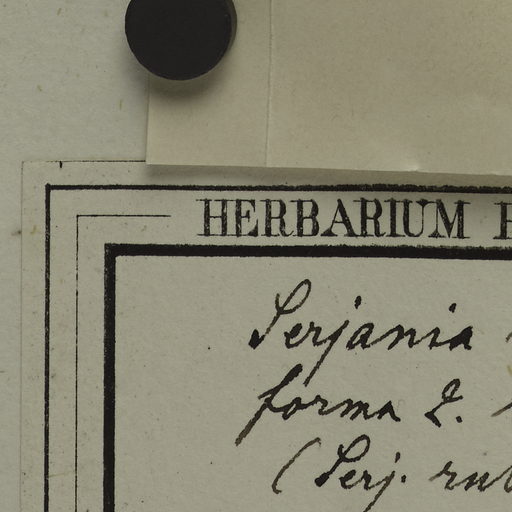 HERBARIUM
Serjania
forma 2.
(Serj.